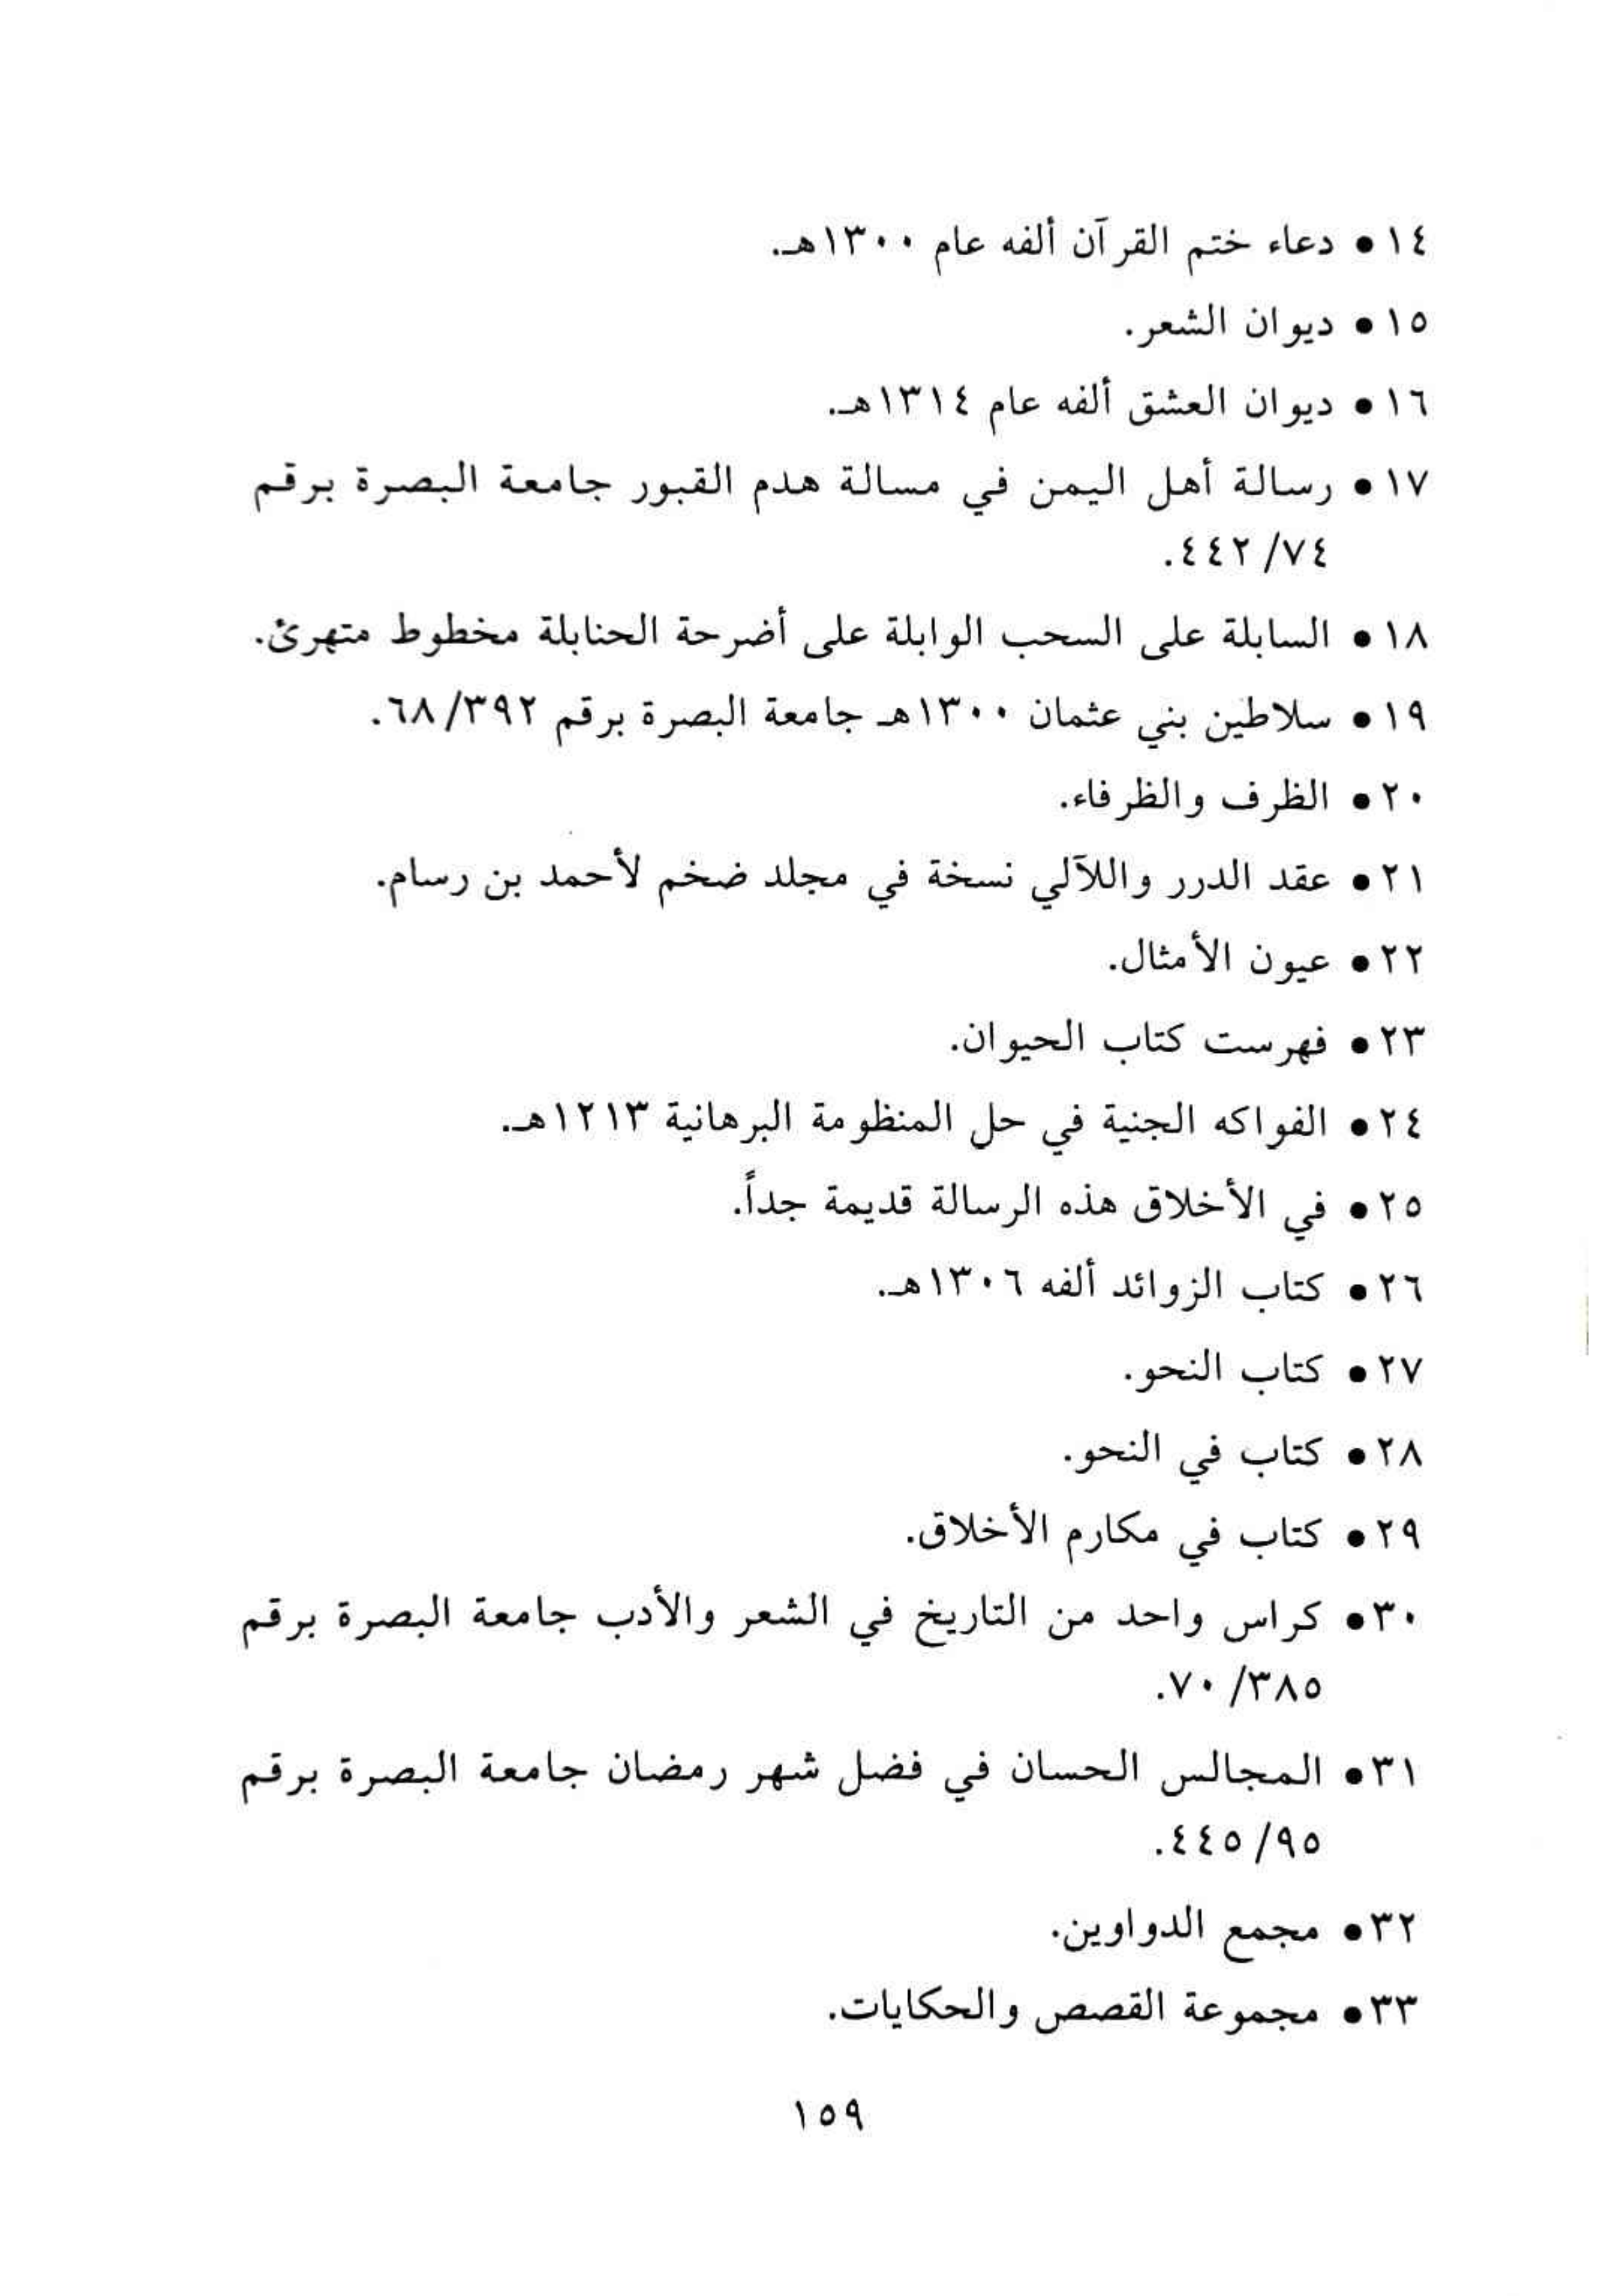 ١٤ • دعاء ختم القرآن ألفه عام ١٣٠٠هـ.
١٥ • ديوان الشعر.
١٦ • ديوان العشق ألفه عام ١٣١٤هـ.
١٧ • رسالة أهل اليمن في مسالة هدم القبور جامعة البصرة برقم
٤٤٢/٧٤.
١٨ • السابلة على السحب الوابلة على أضرحة الحنابلة مخطوط متهرئ.
١٩ • سلاطين بني عثمان ١٣٠٠هـ جامعة البصرة برقم ٦٨/٣٩٢.
٢٠ • الظرف والظرفاء.
٢١ • عقد الدرر واللآلي نسخة في مجلد ضخم لأحمد بن رسام.
٢٢ • عيون الأمثال.
٢٣ • فهرست كتاب الحيوان.
٢٤ • الفواكه الجنية في حل المنظومة البرهانية ١٢١٣هـ.
٢٥ • في الأخلاق هذه الرسالة قديمة جداً.
٢٦ • كتاب الزوائد ألفه ١٣٠٦هـ.
٢٧ • كتاب النحو.
٢٨ • كتاب في النحو.
٢٩ • كتاب في مكارم الأخلاق.
٣٠ • كراس واحد من التاريخ في الشعر والأدب جامعة البصرة برقم
٧٠/٣٨٥.
٣١ • المجالس الحسان في فضل شهر رمضان جامعة البصرة برقم
٤٤٥/٩٥.
٣٢ • مجمع الدواوين.
٣٣ • مجموعة القصص والحكايات.
١٥٩